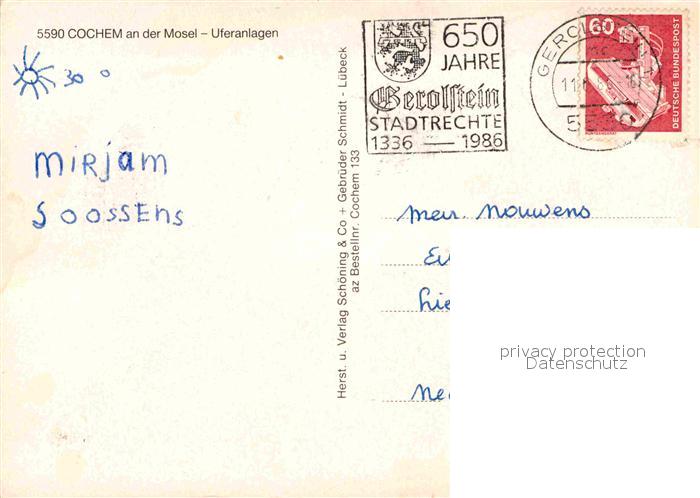 5590 COCHEM an der Mosel – Uferanlagen
30 o
MiRjam
Soossens
Herst. u. Verlag Schöning & Co + Gebrüder Schmidt - Lübeck
az Bestellnr. Cochem 133
650
JAHRE
Gerolstein
STADTRECHTE
1336 — 1986
GEROL
60
DEUTSCHE BUNDESPOST
Meir. Nouwens
privacy protection
Datenschutz